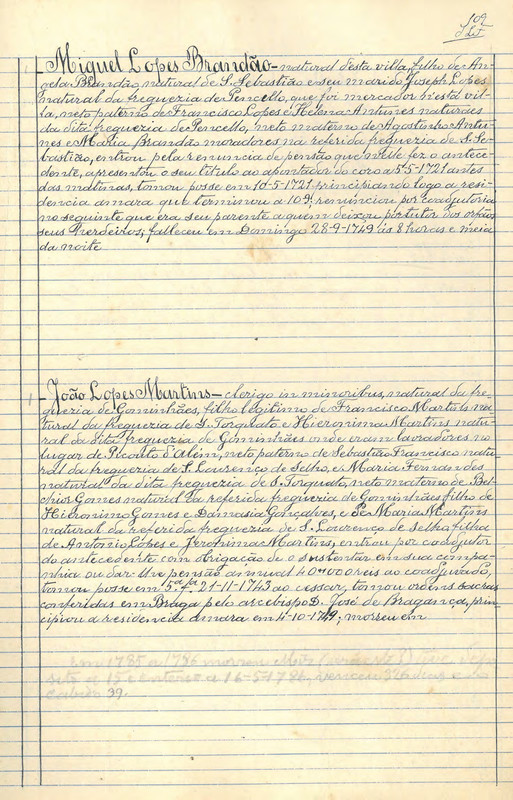 109
Miguel Lopes Brandão - natural d'esta villa, filho de An-
gela Brandão, natural de S. Sebastião e seu marido Joseph Lopes
natural da freguezia de Pencello, que foi mercador n'esta vil-
la, neto paterno de Francisco Lopes e Helena Antunes naturaes
da dita freguezia de Pencello, neto materno de Agostinho Antu-
nes e Maria Brandão moradores na referida freguezia de S. Se-
bastião, entrou pela renuncia de pensão que n'elle fez o antece-
dente, apresentou o seu titulo ao apontador do coro a 5-5-1721 antes
das matinas, tomou posse em 10-5-1721 principiando logo a resi-
dencia amara que terminou a 10-9; renunciou por coadjutoria
no seguinte que era seu parente a quem deixou por tutor dos orfãos
seus herdeiros; falleceu em Domingo 28-9-1749 ás 8 horas e meia
da noite
João Lopes Martins - clerigo in minoribus, natural da fre-
guezia de Gominhães, filho legitimo de Francisco Martins na-
tural da freguezia de S. Torquato e Hieronima Martins natu-
ral da dita freguezia de Gominhães onde eram lavradores no
lugar de d'Além, neto paterno de Sebastião Francisco natu-
ral da freguezia de S. Lourenço de Selho, e Maria Fernandes
natural da dita freguezia de S. Torquato, neto materno de Bel-
chior Gomes natural da referida freguezia de Gominhães filho de
Hieronimo Gomes e Damasia Gonçalves, e de Maria Martins
natural da referida freguezia de S. Lourenço de Selho filha
de Antonio Lopes e Jeronima Martins, entrou por coadjutor
do antecedente com obrigação de o sustentar em sua compa-
nhia ou dar-lhe pensão annual 40000 reis ao coadjuvado,
tomou posse em 5.ª f.ª 21-11-1743 ao cessar, tomou ordens sacras
conferidas em Braga pelo arcebispo D. José de Bragança, prin-
cipiou a residencia amara em 4-10-1749; morreu em
Em 1785 a 1786 morreu
a 15 e a 16-5-1786, venceu dias e
39.